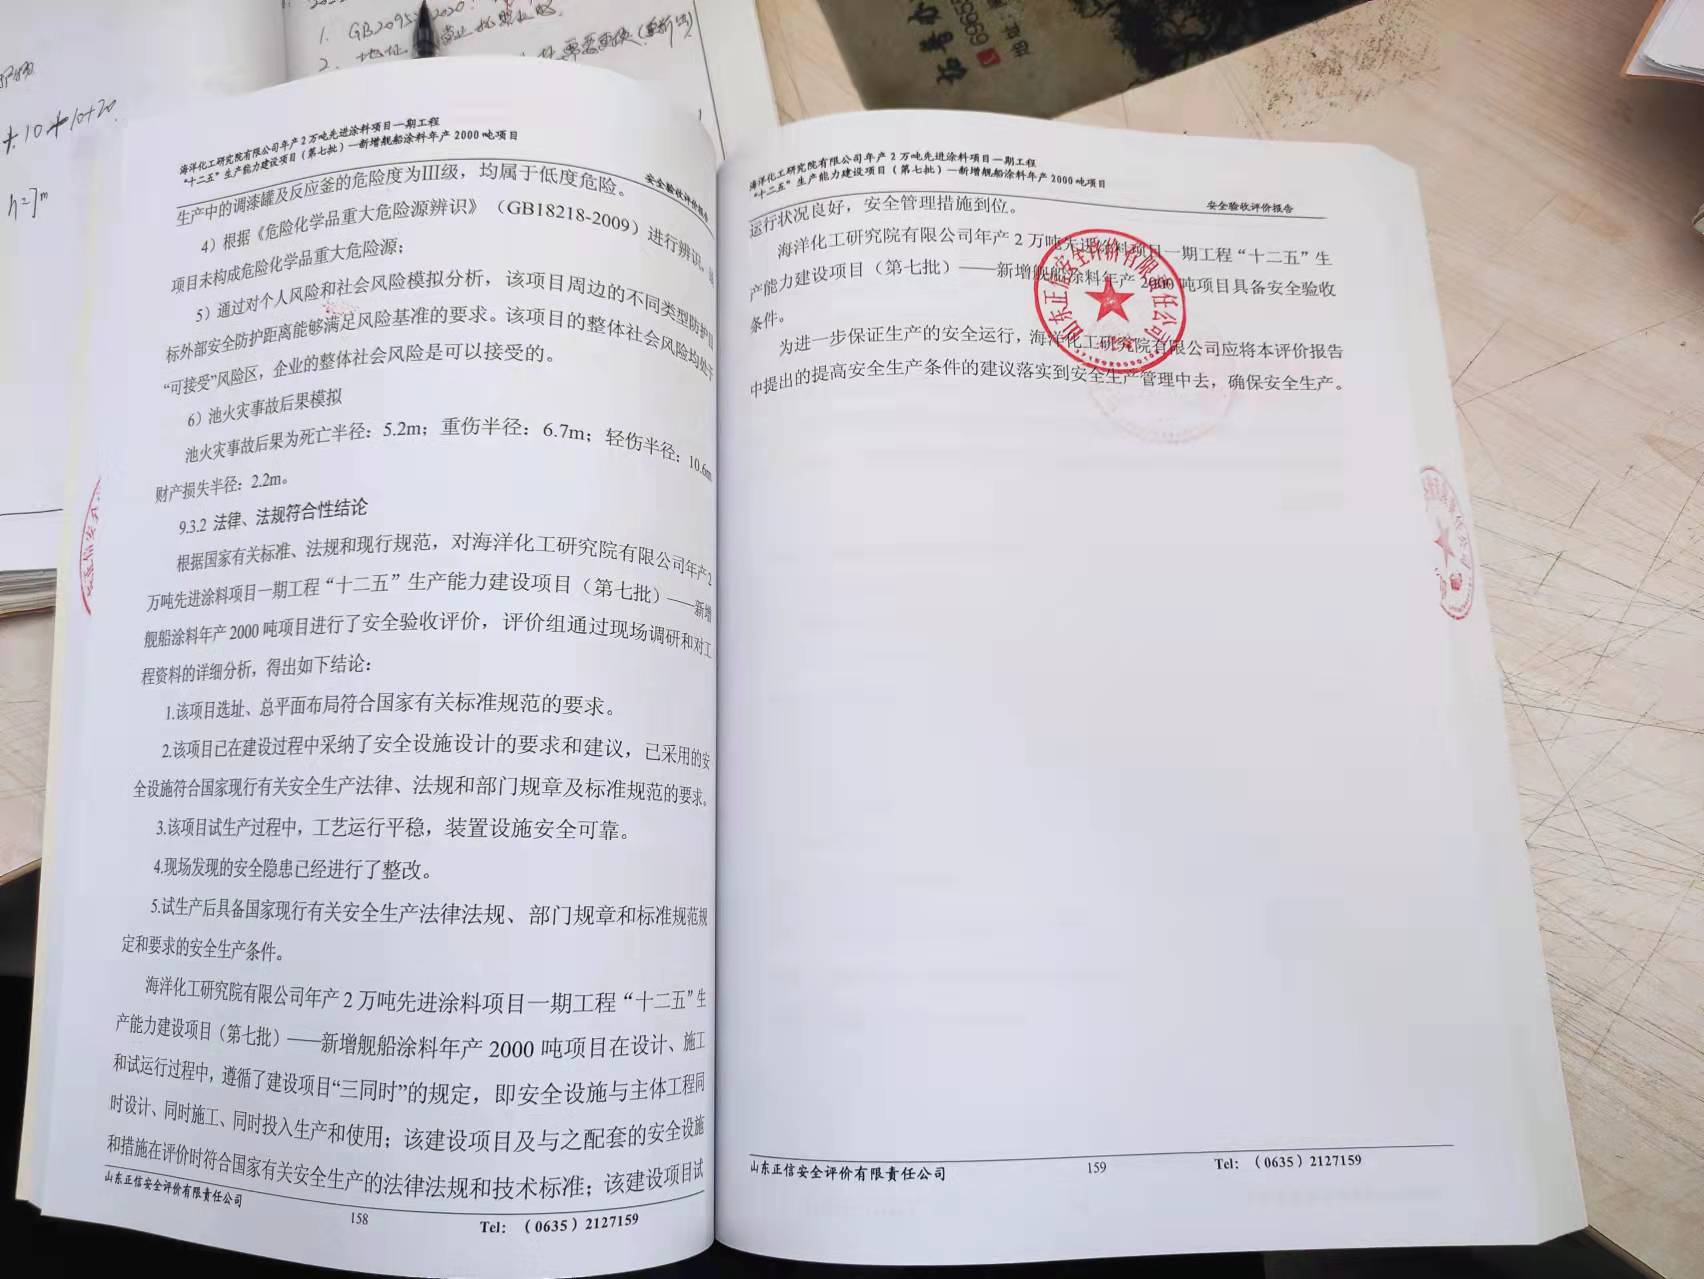 1. GB2095 2020
地址
2.
+ 10 + 10+20
海洋化工研究院有限公司年产2万吨先进涂料项目一期工程
“十二五”生产能力建设项目（第七批）—新增舰船涂料年产2000吨项目
安全验收评价报告
生产中的调漆罐及反应釜的危险度为Ⅲ级，均属于低度危险。
4）根据《危险化学品重大危险源辨识》（GB18218-2009）进行辨识，
项目未构成危险化学品重大危险源；
5）通过对个人风险和社会风险模拟分析，该项目周边的不同类型防护目
标外部安全防护距离能够满足风险基准的要求。该项目的整体社会风险均处于
“可接受”风险区，企业的整体社会风险是可以接受的。
6）池火灾事故后果模拟
池火灾事故后果为死亡半径：5.2m；重伤半径：6.7m；轻伤半径：10.6m
财产损失半径：2.2m。
9.3.2 法律、法规符合性结论
根据国家有关标准、法规和现行规范，对海洋化工研究院有限公司年产2
万吨先进涂料项目一期工程“十二五”生产能力建设项目（第七批）——新增
舰船涂料年产2000吨项目进行了安全验收评价，评价组通过现场调研和对工
程资料的详细分析，得出如下结论：
1.该项目选址、总平面布局符合国家有关标准规范的要求。
2.该项目已在建设过程中采纳了安全设施设计的要求和建议，已采用的安
全设施符合国家现行有关安全生产法律、法规和部门规章及标准规范的要求。
3.该项目试生产过程中，工艺运行平稳，装置设施安全可靠。
4.现场发现的安全隐患已经进行了整改。
5.试生产后具备国家现行有关安全生产法律法规、部门规章和标准规范规
定和要求的安全生产条件。
海洋化工研究院有限公司年产2万吨先进涂料项目一期工程“十二五”生
产能力建设项目（第七批）——新增舰船涂料年产2000吨项目在设计、施工
和试运行过程中，遵循了建设项目“三同时”的规定，即安全设施与主体工程同
时设计、同时施工、同时投入生产和使用；该建设项目及与之配套的安全设施
和措施在评价时符合国家有关安全生产的法律法规和技术标准；该建设项目试
山东正信安全评价有限责任公司
158
Tel：（0635）2127159
海洋化工研究院有限公司年产2万吨先进涂料项目一期工程
“十二五”生产能力建设项目（第七批）—新增舰船涂料年产2000吨项目
安全验收评价报告
运行状况良好，安全管理措施到位。
海洋化工研究院有限公司年产2万吨先进涂料项目一期工程“十二五”生
产能力建设项目（第七批）——新增舰船涂料年产2000吨项目具备安全验收
条件。
为进一步保证生产的安全运行，海洋化工研究院有限公司应将本评价报告
中提出的提高安全生产条件的建议落实到安全生产管理中去，确保安全生产。
山东正信安全评价有限责任公司
山东正信安全评价有限责任公司
159
Tel：（0635）2127159